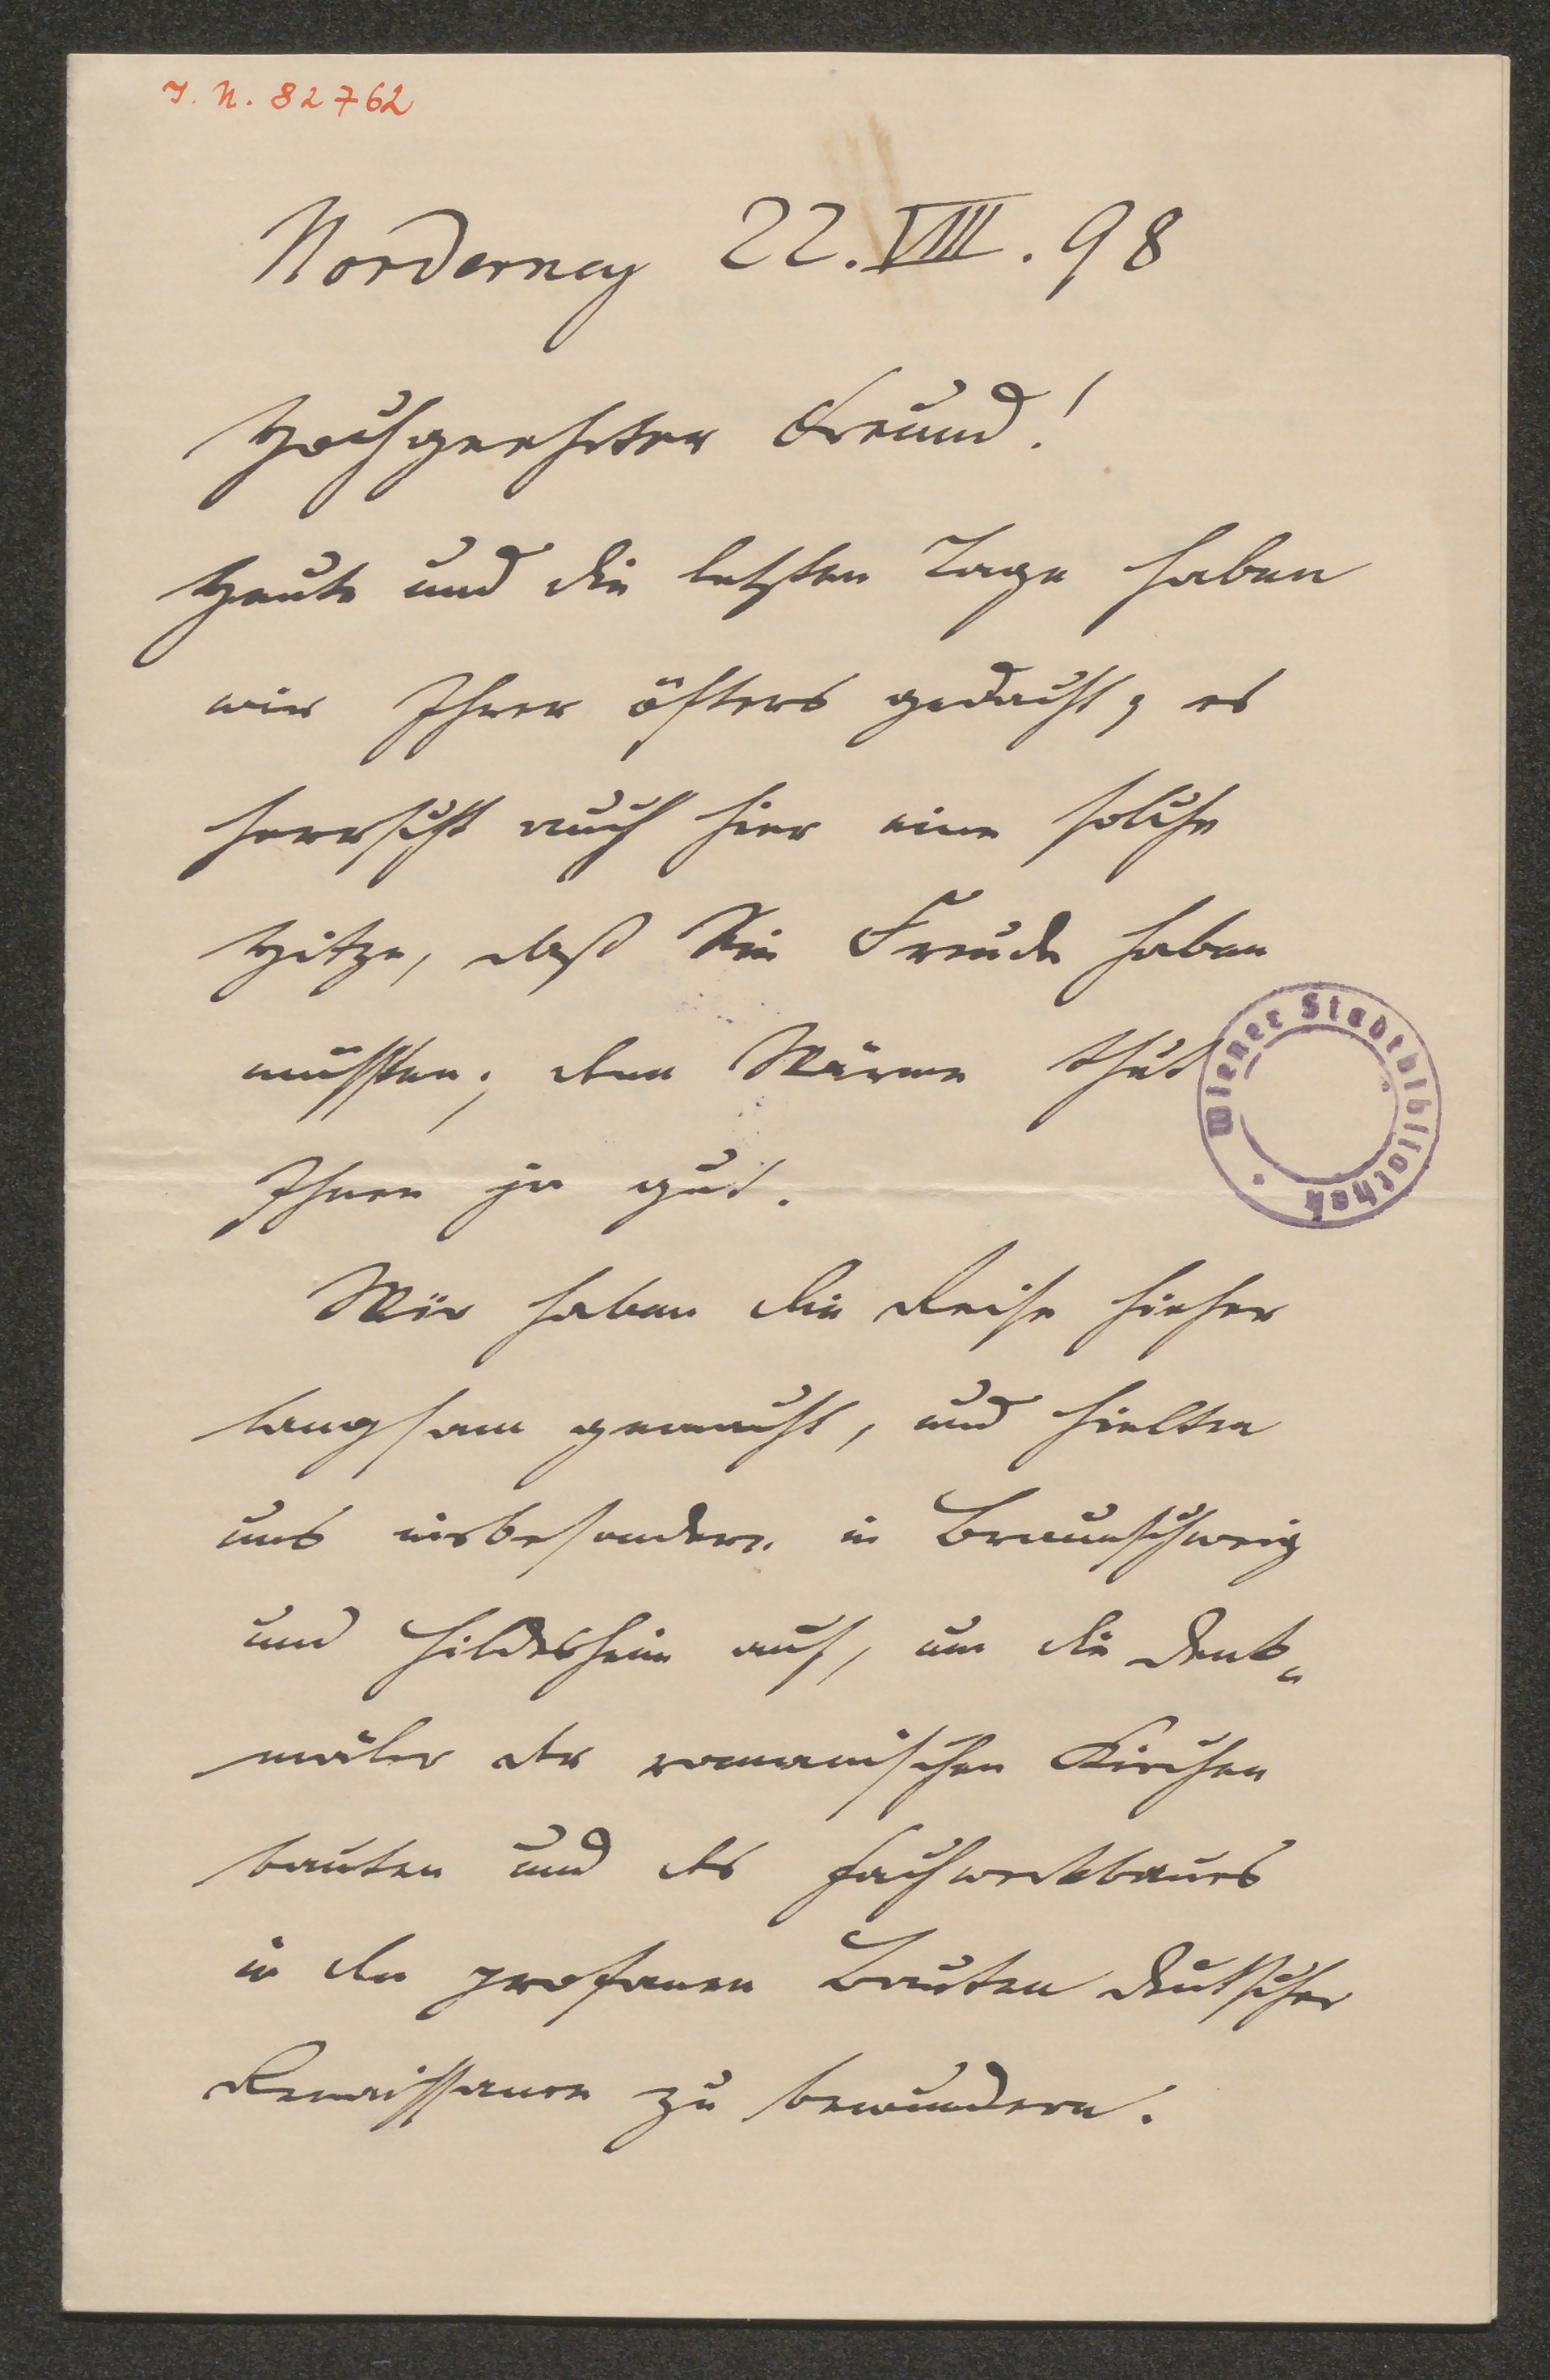 I. N. 82762
Norderney 22. VIII. 98
Hochgeehrter Freund!
Heute und die letzten Tage haben
wir Ihrer öfters gedacht; es
herrscht auch hier eine solche
Hitze, daß Sie Freude haben
müßten; denn Wärme thut
Ihnen ja gut.
Wiener Stadtbibliothek
Wir haben die Reise hieher
langsam gemacht, und hielten
uns insbesondere in Braunschweig
und Hildesheim auf, um die Denk„
mäler der romanischen Kirchen
bauten und des Fachwerkbaues
in den profanen Bauten deutscher
Renaissance zu bewundern.